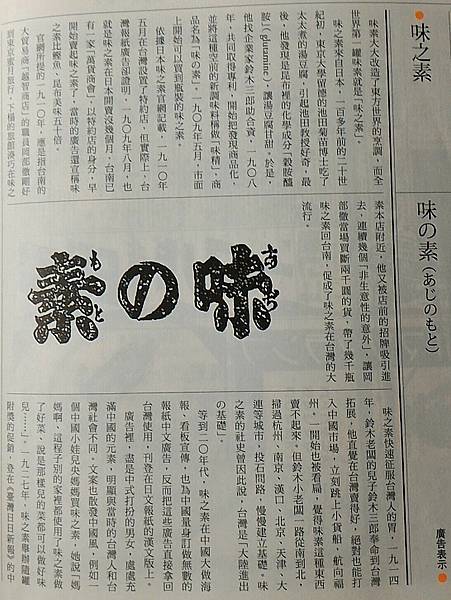 ●味之素
味の素(あじのもと)
廣告表示●
味素大大改造了東方世界的烹調,而全
世界第一罐味素就是「味之素」。
味之素來自日本,一百多年前的二十世
紀初,東京大學留德的池田菊苗博士吃了
太太煮的湯豆腐,引起池田教授好奇,最
後,他發現是昆布裡的化學成分「穀胺醯
胺」(glutamine),讓湯豆腐甜甘。於是,
他找企業家鈴木三郎助合資,一九〇八
年,共同取得專利,開始把發現商品化,
並將這種空前的新調味料稱做「味精」,商
品名為「味の素」。一九〇九年五月,市面
上開始可以買到瓶裝的味之素。
依據日本味之素官網記載,一九一〇年
五月在台灣設置了特約店,但實際上,台
灣報紙廣告卻證明,一九〇九年八月,也
就是味之素在日本開賣沒幾個月,台南已
有一家「萬貨商會」,以特約店的身分,早
開始賣起味之素了,當時的廣告還宣稱味
之素比鰹魚、昆布美味五十倍。
官網所提的一九一〇年,應是指台南的
大貿易商「越智商店」的職員岡部徹剛好
到東京蜜月旅行,下榻的旅館湊巧在味之
素本店附近,他又被店前的招牌吸引進
去,連續幾個「非生意性的意外」,讓岡
部徹當場買斷兩千圓的貨,帶了幾千瓶
味之素回台南,促成了味之素在台灣的大
流行。
味の素
あぢ もと
味之素快速征服台灣人的胃,一九一四
年,鈴木老闆的兒子鈴木三郎奉命到台灣
拓展,他直覺在台灣賣得好,絕對也能打
入中國市場,立刻跳上小貨船,航向福
州。一開始也被看扁,覺得味素這種東西
賣不起來,但鈴木小老闆一路從南到北,
掃過杭州、南京、漢口、北京、天津、大
連等城市,投石問路,慢慢建立基礎。味
之素的社史曾因此說,台灣是「大陸進出
的基礎」。
等到二〇年代,味之素在中國大做海
報、看板宣傳,也為中國量身訂做無數的
報紙中文廣告,反而把這些廣告直接拿回
台灣使用,刊登在日文報紙的漢文版上。
廣告裡,盡是中式打扮的男女,處處充
滿中國的元素,明顯與當時的台灣人和台
灣社會不同,文案也散發中國風,例如一
個中國小娃兒央媽媽買味之素,她說「媽
媽啊,這程子別的家裡都使用了味之素做
了好菜、說是那樣兒的菜都可以做好味
兒……」,一九二七年,味之素舉辦隨罐
附獎的促銷,登在《臺灣日日新報》的中